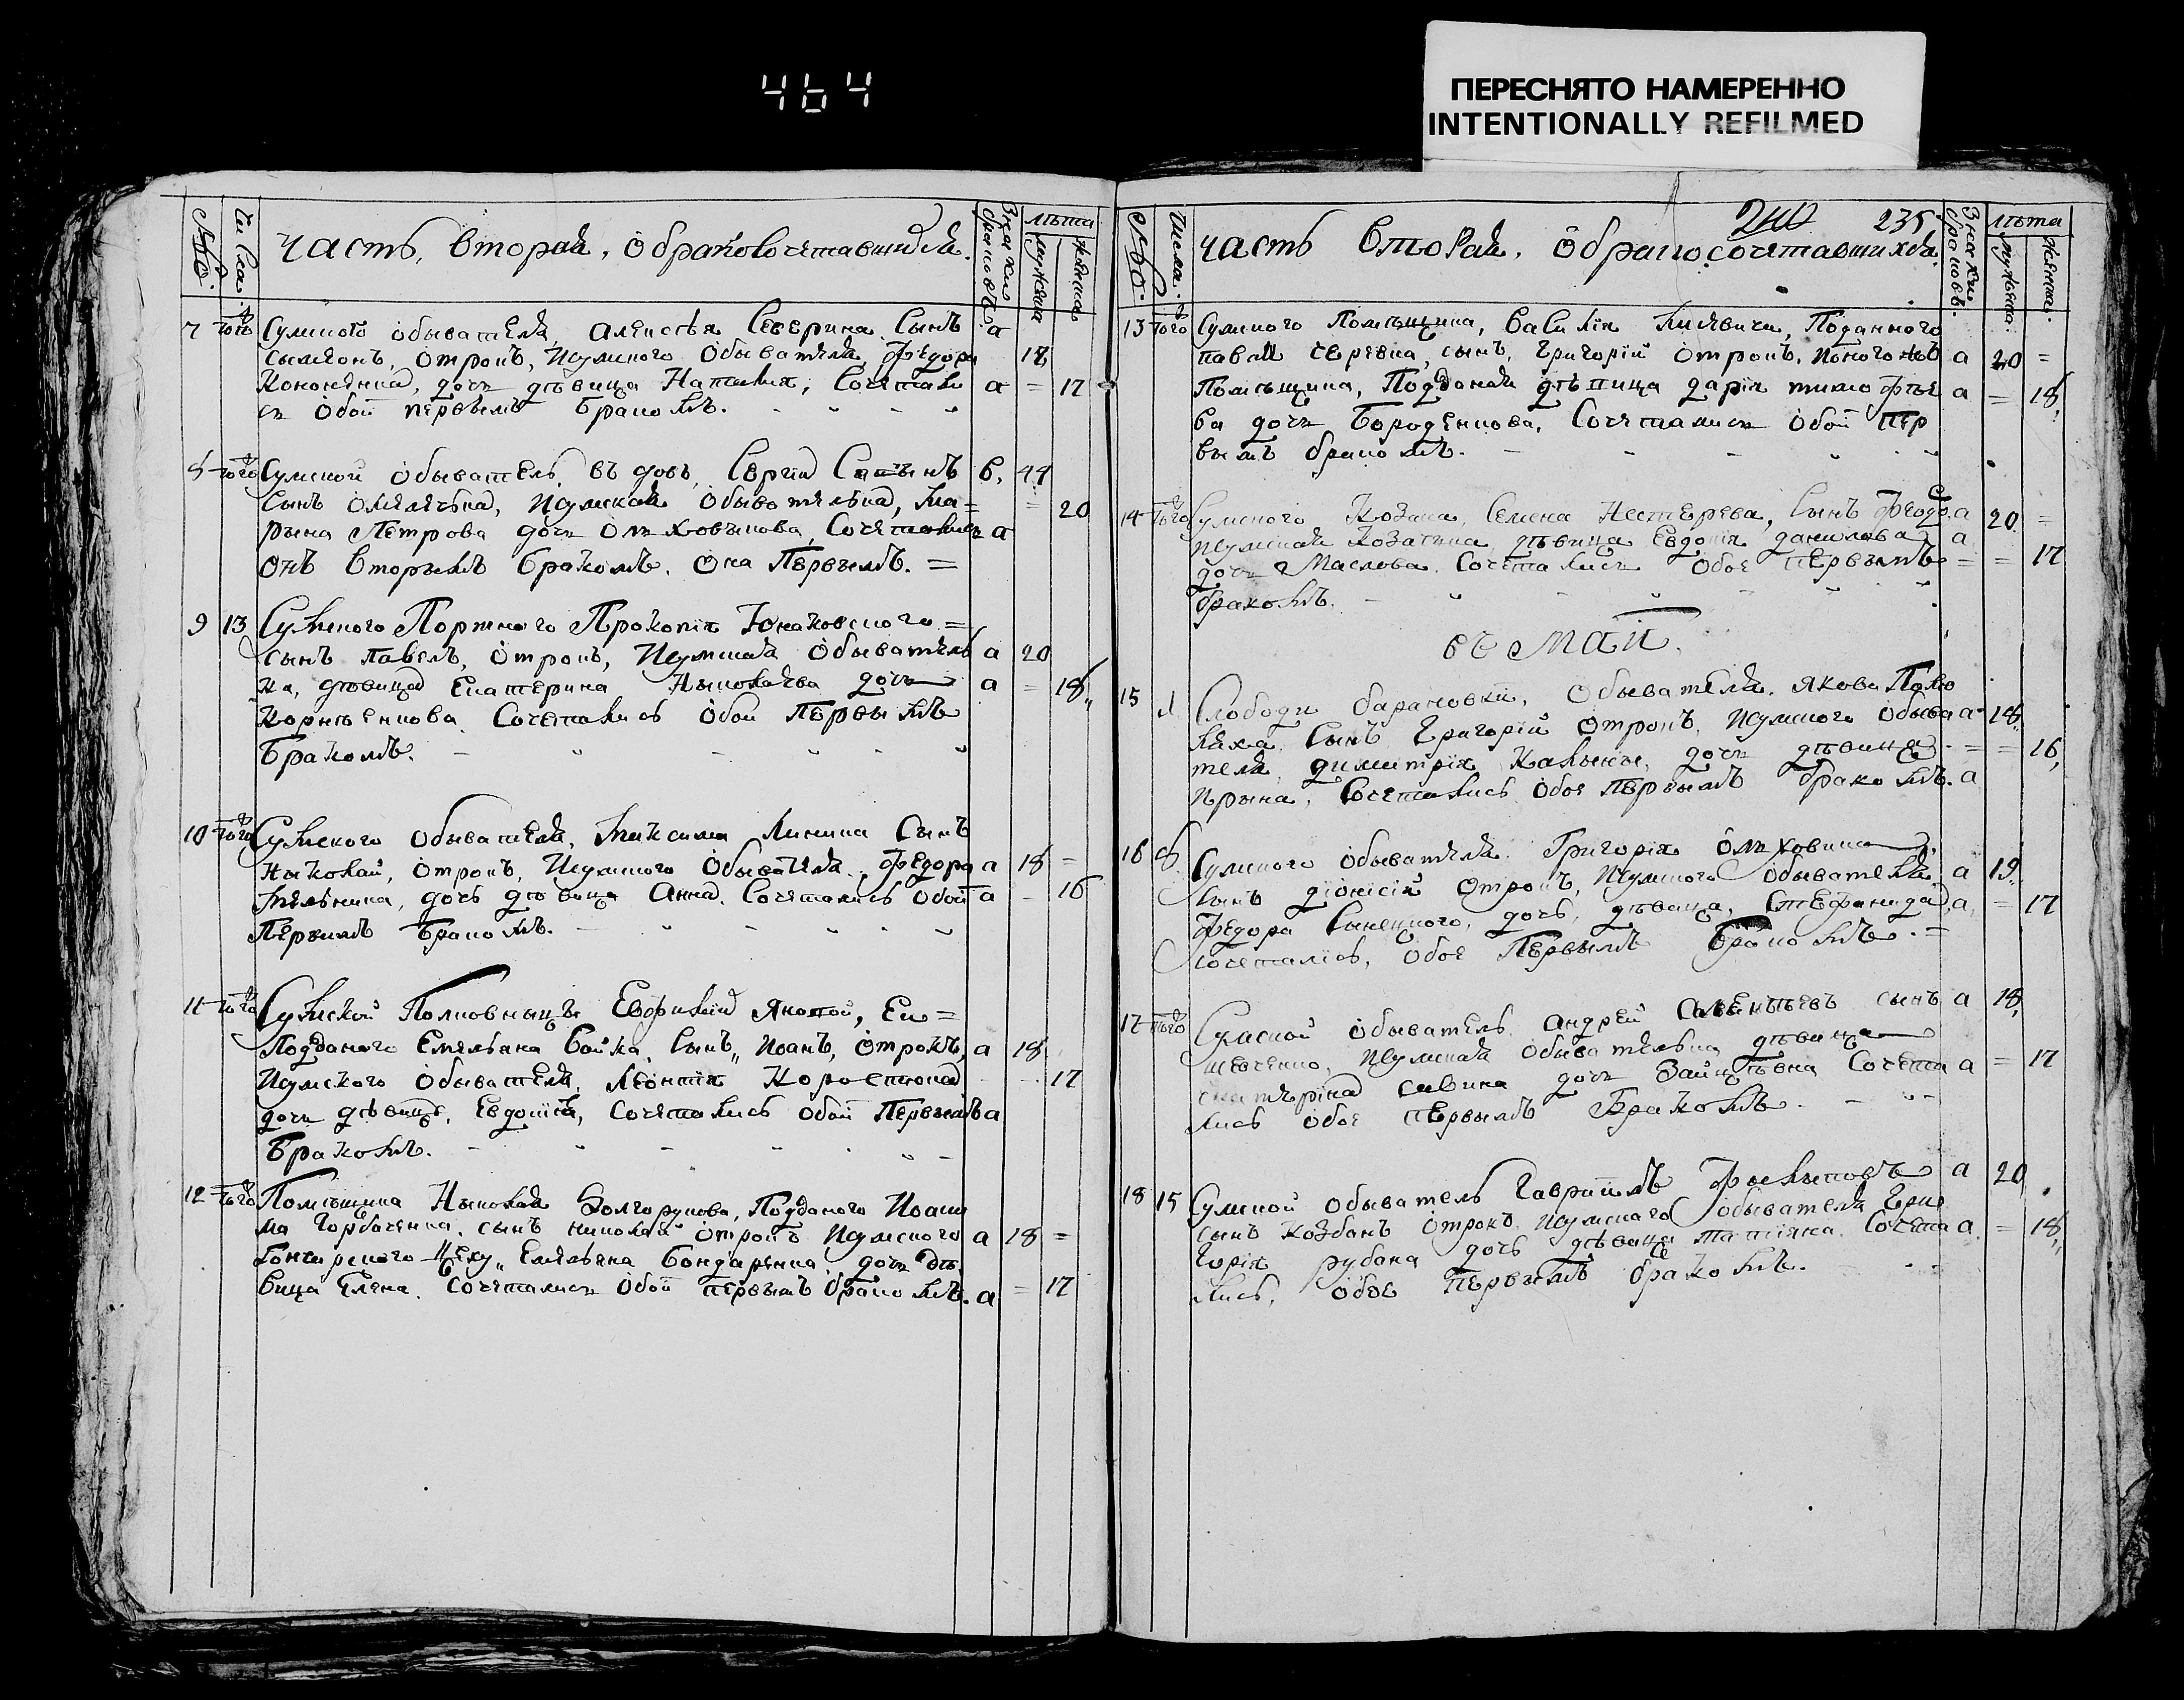 464
ПЕРЕСНЯТО НАМЕРЕННО
INTENTIONALLY REFILMED
Числа
часть, вторая, о бракосочетавшихся.
Значки браковъ
лѣта
мужеска
женска
7 того Сумского обывателя, алексѣя Северина Сынъ а
сымеонъ, отрокъ, исумского обывателя, Федора 18
Кононенка, дочь дѣвица Наталия, Сочетали а = 17
сь обои первымъ бракомъ.
8 того Сумской обыватель, вдовъ, Сергий в, 44
Сынъ омелечька, исумская обывателька, Ма= = 20
рына Петрова дочь Олховыкова, Сочетались а
онъ вторымъ бракомъ, она Первымъ. =
9 13 Сумского Портного Прокопія Юнаковского =
сынъ павелъ, отрокъ, Исумская обыватель а 20
ка, дѣвица Екатерина Ныколаева дочь а = 18
Корнѣенкова Сочетались обои Первымъ
Бракомъ.
10 того Сумского обывателя, Максима Линника Сынъ
Ныколай, отрокъ, Исумского обывателя, Федора а 18 =
Мельника, дочь дѣвица Анна, Сочетались обои а = 16
Первымъ Бракомъ.
11 того Сумской Полковныцы Евфимии, Ея=
Подданого Емельяна Бойка, Сынъ, Иоанъ, отрокъ, а 18
Исумского обывателя, Леонтия Коростюка 17
дочь дѣвица, Евдокия, сочетались обои Первымъ а
Бракомъ.
12 того Помѣщика Ныколая Долгорукова, Подданого Иоан
на Горбаченка, сынъ николай отрокъ Исумского а 18 =
Гончарского Цеху, Емельяна Бондаренка дочь дѣ
вица Елена, Сочетались обои первымъ бракомъ. а = 17
240 235
Числа
часть вторая, о бракосочетавшихся.
Значки браковъ.
лѣта
мужеска
женска.
13 того Сумского Помѣщика, Василія, Подданного
павла сынъ, Григорій отрокъ, а 20 =
Помѣщика, Подданая дѣвица дарія тимофѣе а = 18
ва дочь Бороденкова, Сочетались обои Пер
вымъ бракомъ.
14 того Сумского Козака, Семена Нестерева, Сынъ Феодо, а 20 =
исумская Козачка, дѣвица Евдокія данилова а
дочь Маслова, Сочетались обое первымъ = = 17
бракомъ.
въ Маіи.
15 Слободы барановки, обывателя, якова Полю
ляха, Сынъ Григорій отрокъ, исумского обыва а 18
теля, димитрія Калынки, дочь дѣвица = = 16,
Ирына, Сочетались обое Первымъ бракомъ. а
16 Сумского обывателя Григорія Олховика
сынъ діонісій отрокъ, Исумского обывателя а 19
Федора Сыненкого, дочь, дѣвица, Стефанида, а, = 17
сочеталісь, обое Первымъ бракомъ. =
17 того Сумской обыватель андрей сынъ а 18,
шевченко, Исумская обывателька дѣвица
екатеріна савина дочь Зайцѣвна Сочета а = 17
лись обое первымъ Бракомъ.
18 15 Сумской обыватель Гавриилъ а 20
сынъ козбанъ отрокъ, исумского обывателя Гри
горія рубана дочь дѣвица татіяна, Сочета а = 18,
лись, обое первымъ бракомъ.